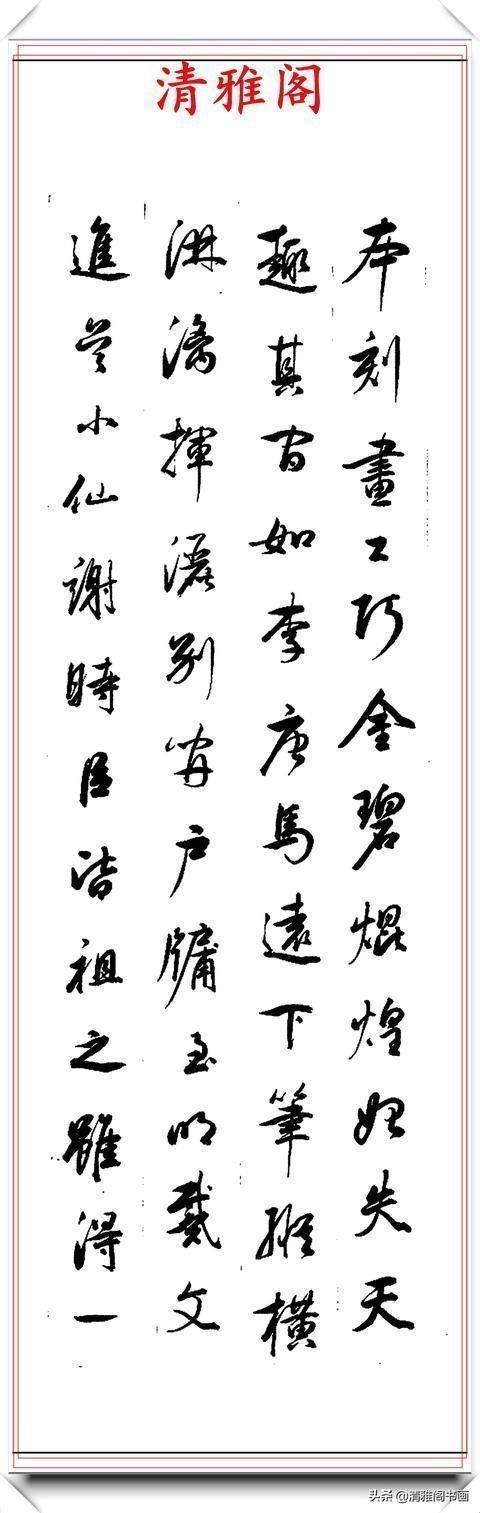 清雅阁
本刻畫工巧金碧焜煌始失天
趣其間如李唐馬遠下筆縱橫
淋漓揮灑別開戶牖至明戴文
進吳小仙謝時臣皆祖之雖得一
头条 @清雅阁书画